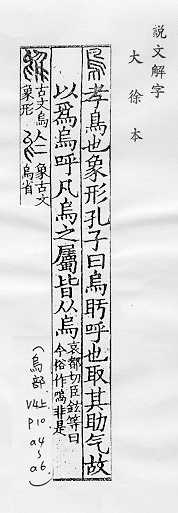 說文解字
大徐本
烏孝鳥也象形孔子曰烏盱呼也取其助气故
以爲烏呼凡烏之屬皆从烏
哀都切臣鉉等曰
今俗作嗚非是
古文烏
象形
象古文
烏省
(烏部
V4上
P10
a4
~
a6.)